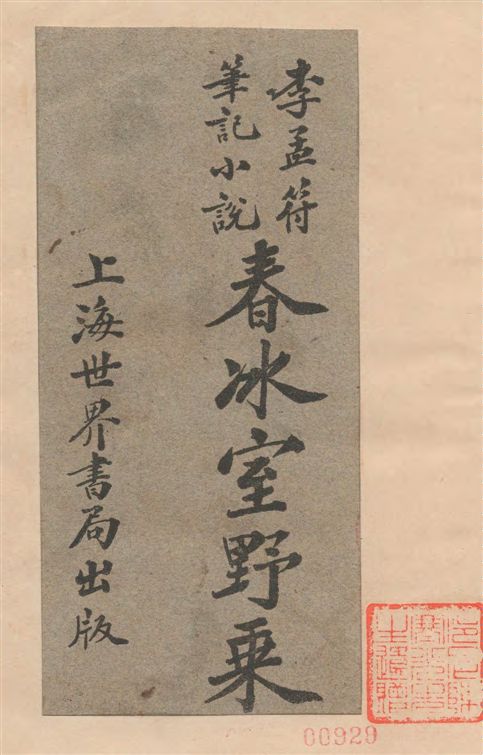 李孟符
筆記小説
春冰室野乗
上海世界書局出版
00929